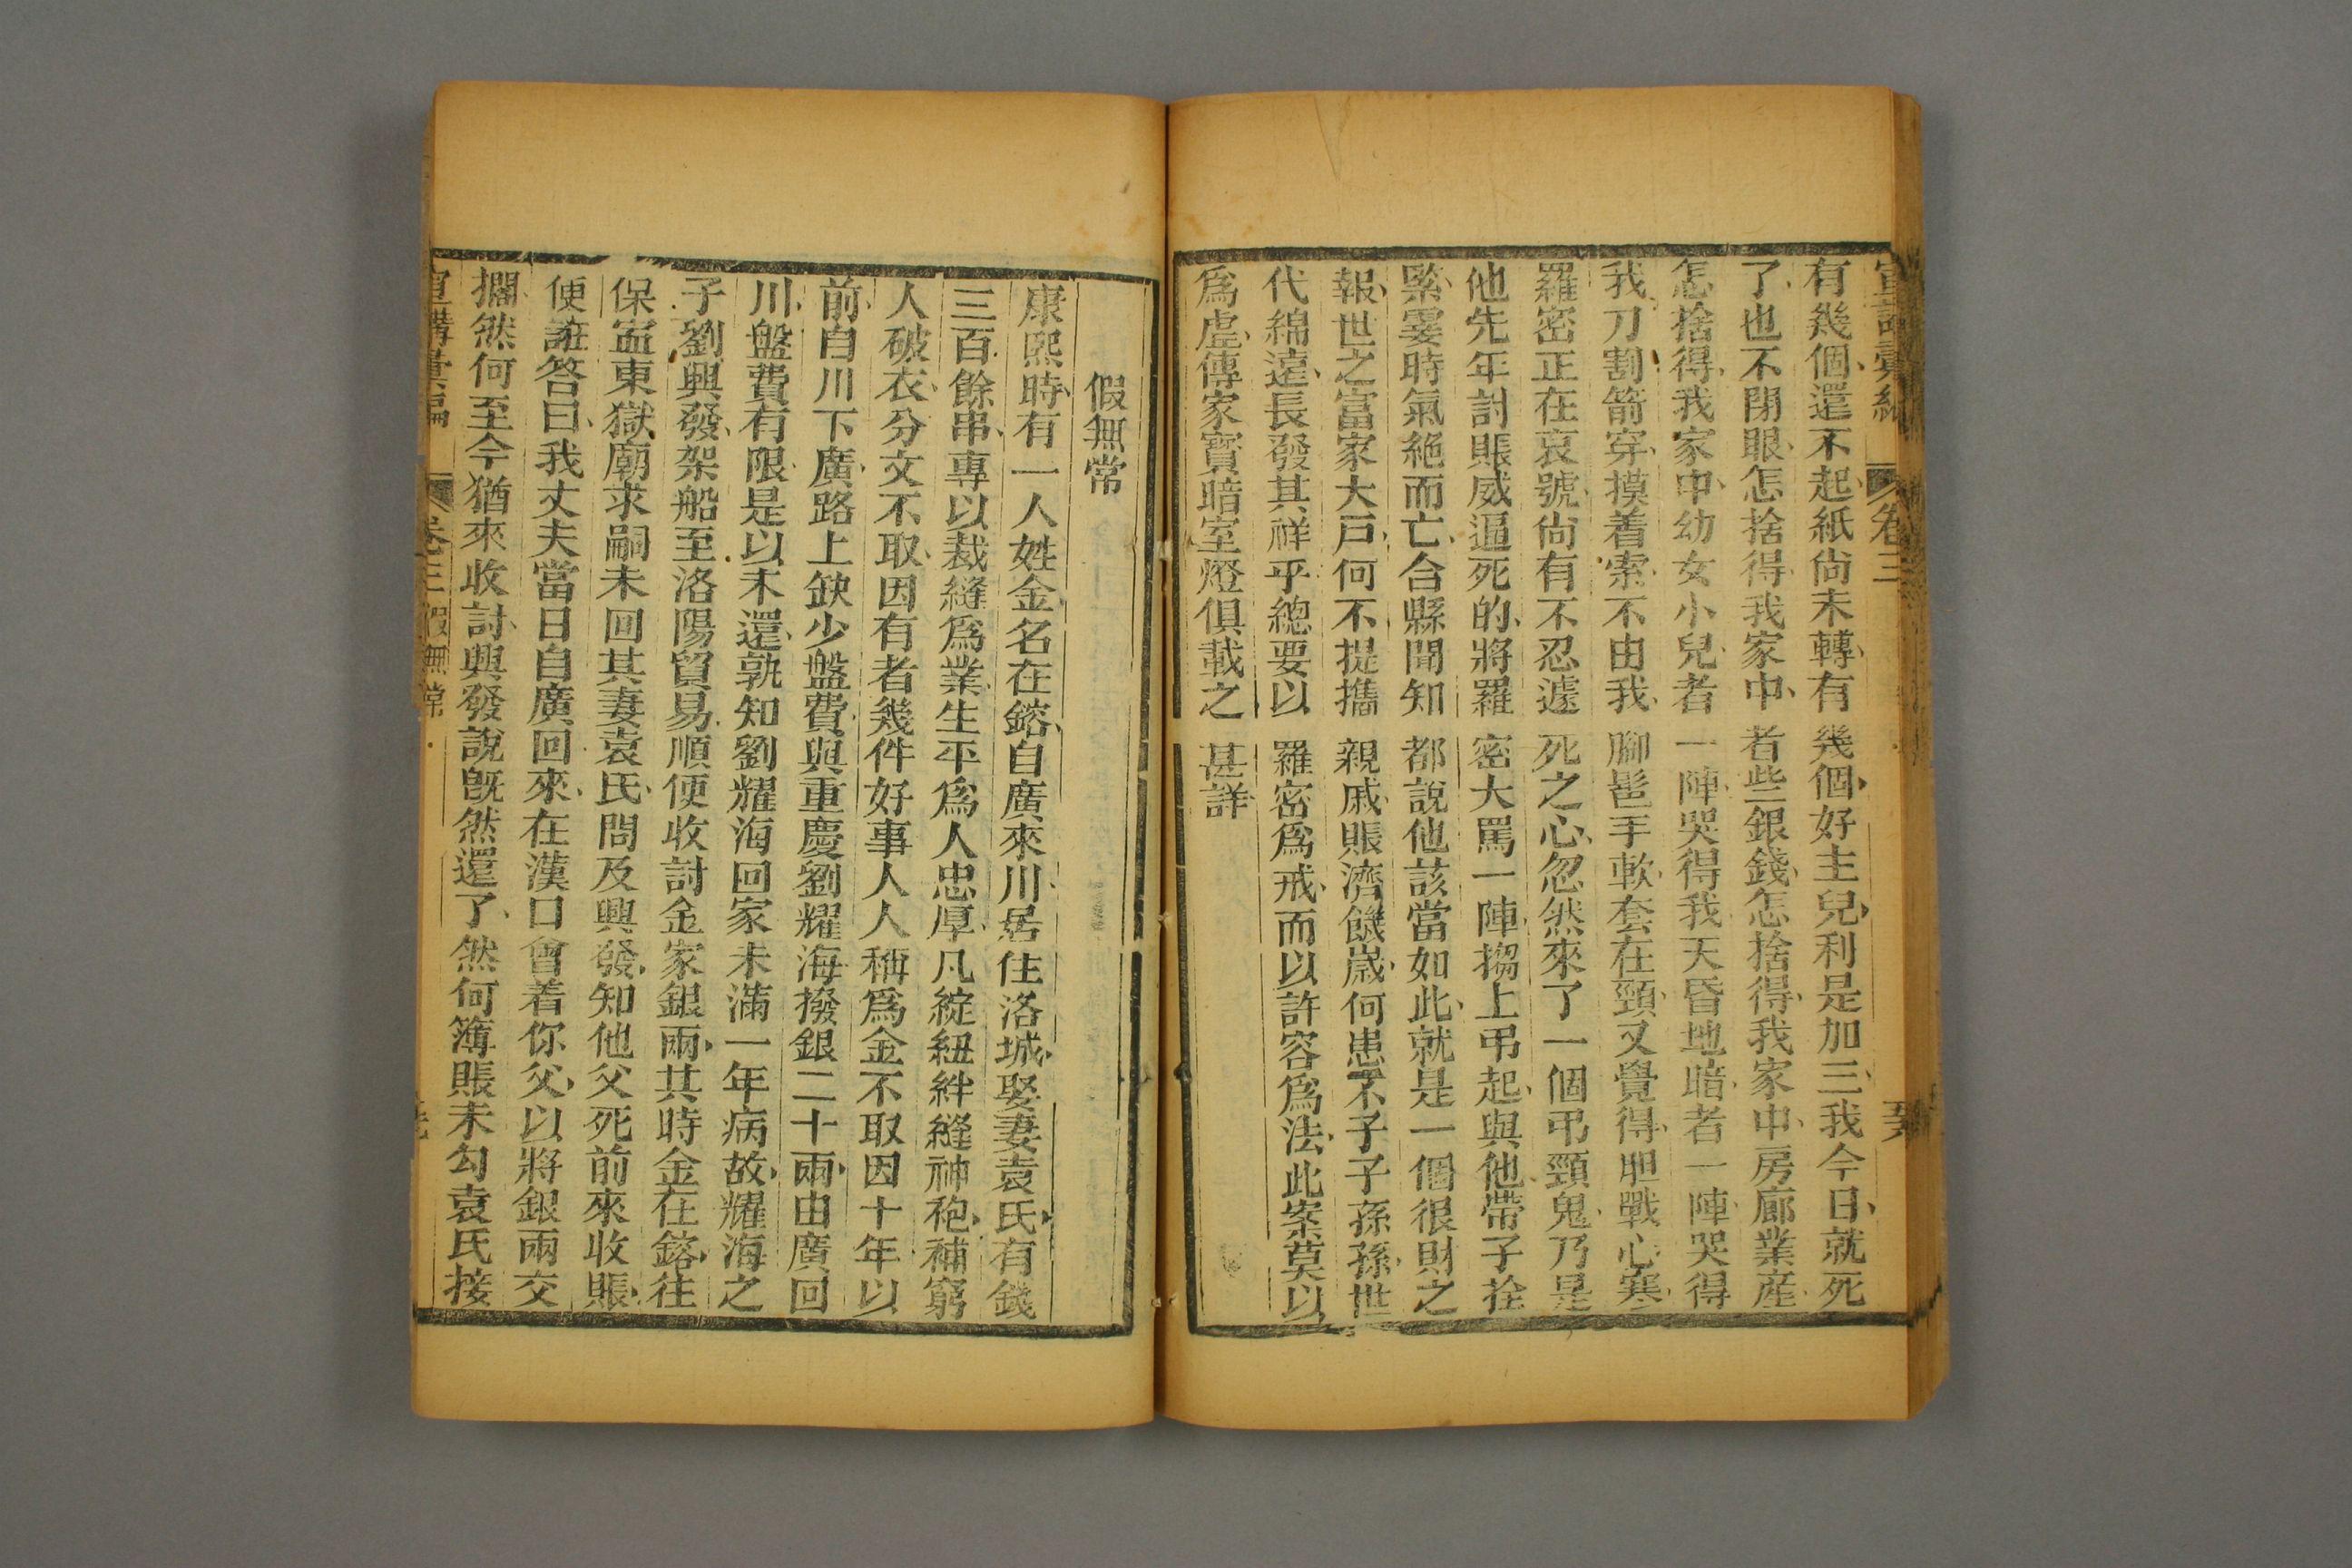 宣講彙編 卷三
有幾個還不起紙尙未轉有幾個好主兒利是加三我今日就死
了也不閉眼怎捨得我家中者些銀錢怎捨得我家中房廊業産
怎捨得我家中幼女小兒者一陣哭得我天昏地暗者一陣哭得
我刀割箭穿摸着索不由我脚㞎手軟套在頸又覺得胆戰心寒
羅密正在哀號尙有不忍遽死之心忽然來了一個弔頸鬼乃是
他先年討賬威逼死的將羅密大罵一陣搊上弔起與他帶子拴
緊霎時氣絕而亡合縣聞知都說他該當如此就是一個很財之
報世之富家大戸何不提攜親戚賬濟饑嵗何患不子子孫孫世
代綿遠長發其祥乎總要以羅密爲戒而以許容爲法此案莫以
爲虛傳家寶暗室燈俱載之甚詳
假無常
康熙時有一人姓金名在鎔自廣來川居住洛城娶妻袁氏有錢
三百餘串專以裁縫爲業生平爲人忠厚凡綻紐絆縫神袍補窮
人破衣分文不取因有者幾件好事人人稱爲金不取因十年以
前自川下廣路上缺少盤費與重慶劉耀海撥銀二十兩由廣回
川盤費有限是以未還孰知劉耀海回家未滿一年病故耀海之
子劉興發架船至洛陽貿易順便收討金家銀兩其時金在鎔往
保寍東獄廟求嗣未回其妻袁氏問及興發知他父死前來收賬
便誑答曰我丈夫當日自廣回來在漢口會着你父以將銀兩交
擱然何至今猶來收討興發說旣然還了然何簿賬未勾袁氏接
宣講彙編 卷三 假無常